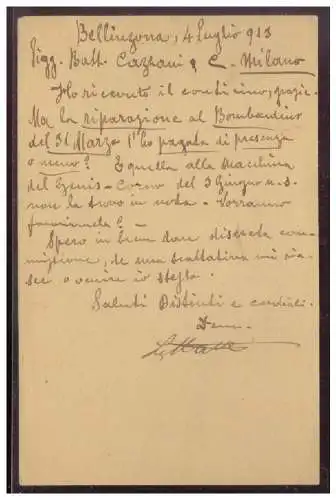 Bellinzona, 4 Luglio 913
Sigg. Batt. Cazzani & C. - Milano
Ho ricevuto il conticino, grazie.
Ma la riparazione al Bombardino
del 31 Marzo l'ho pagata di presenza
o meno? E quella alla macchina
del Genis-Corno del 3 Giugno u.s.
non la trovo in nota. - Vorranno
- 
Spero in breve dare discreta com-
missione, se una trattativa mi
o venire io stesso.
Saluti Distinti e cordiali.
Dev.